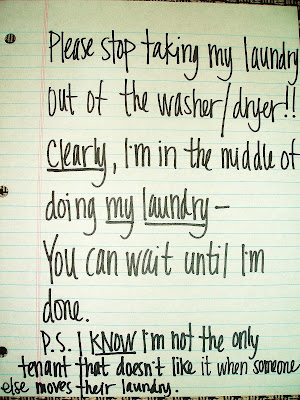 Please stop taking my laundry
out of the washer/dryer!!
Clearly, I'm in the middle of
doing my laundry-
You can wait until I'm
done.
P.S. I KNOW I'm not the only
tenant that doesn't like it when someone
else moves their laundry.